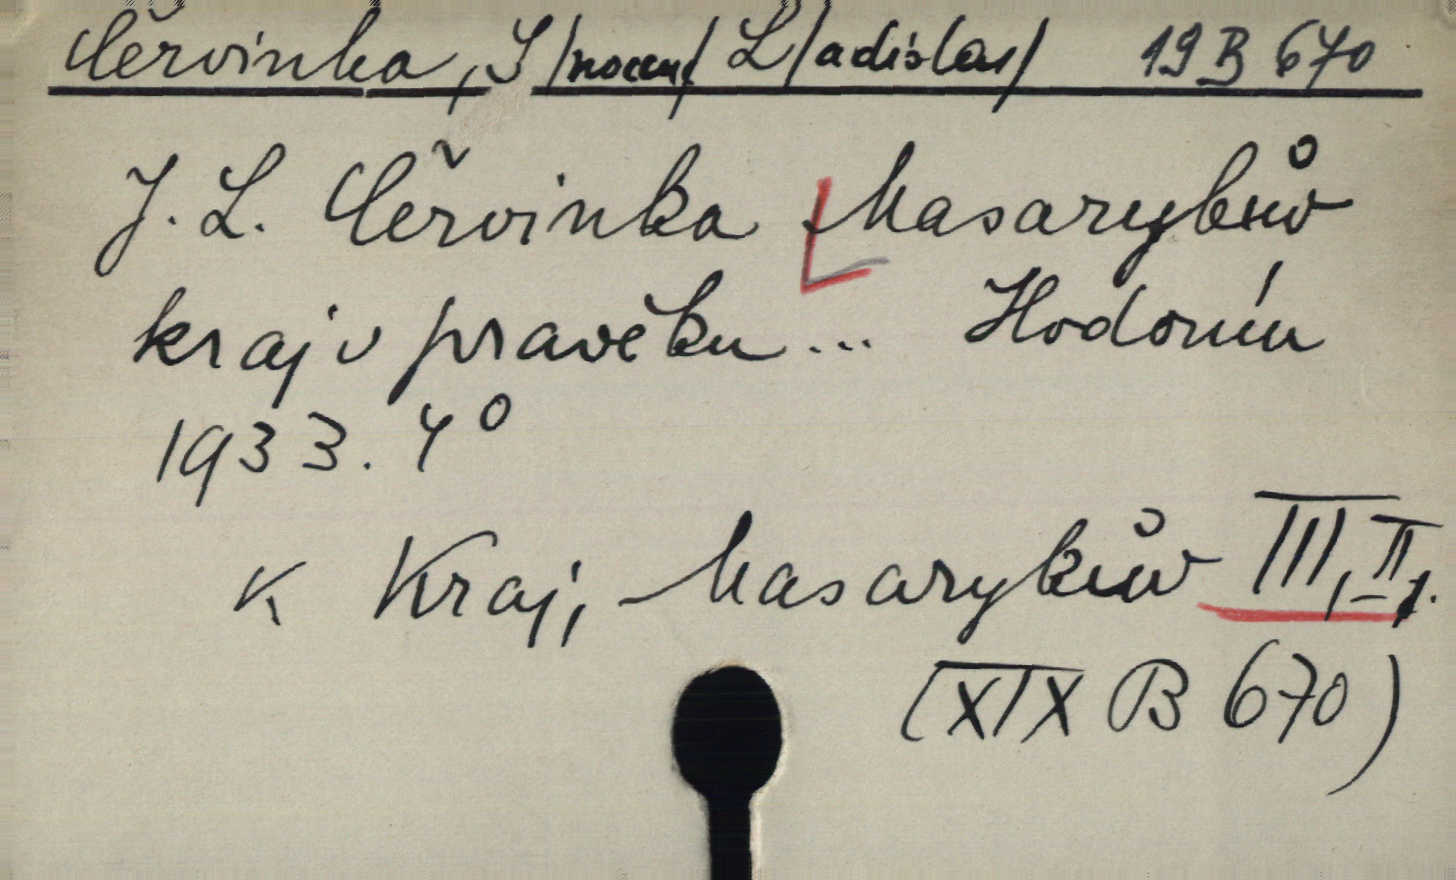 Červinka, I/nocenc/ L/adislav/ 19 B 670
J. L. Červinka Masarykův
kraj v pravěku... Hodonín
1933. 4°
K Kraj, Masarykův III, II, 1.
(XIX B 670)